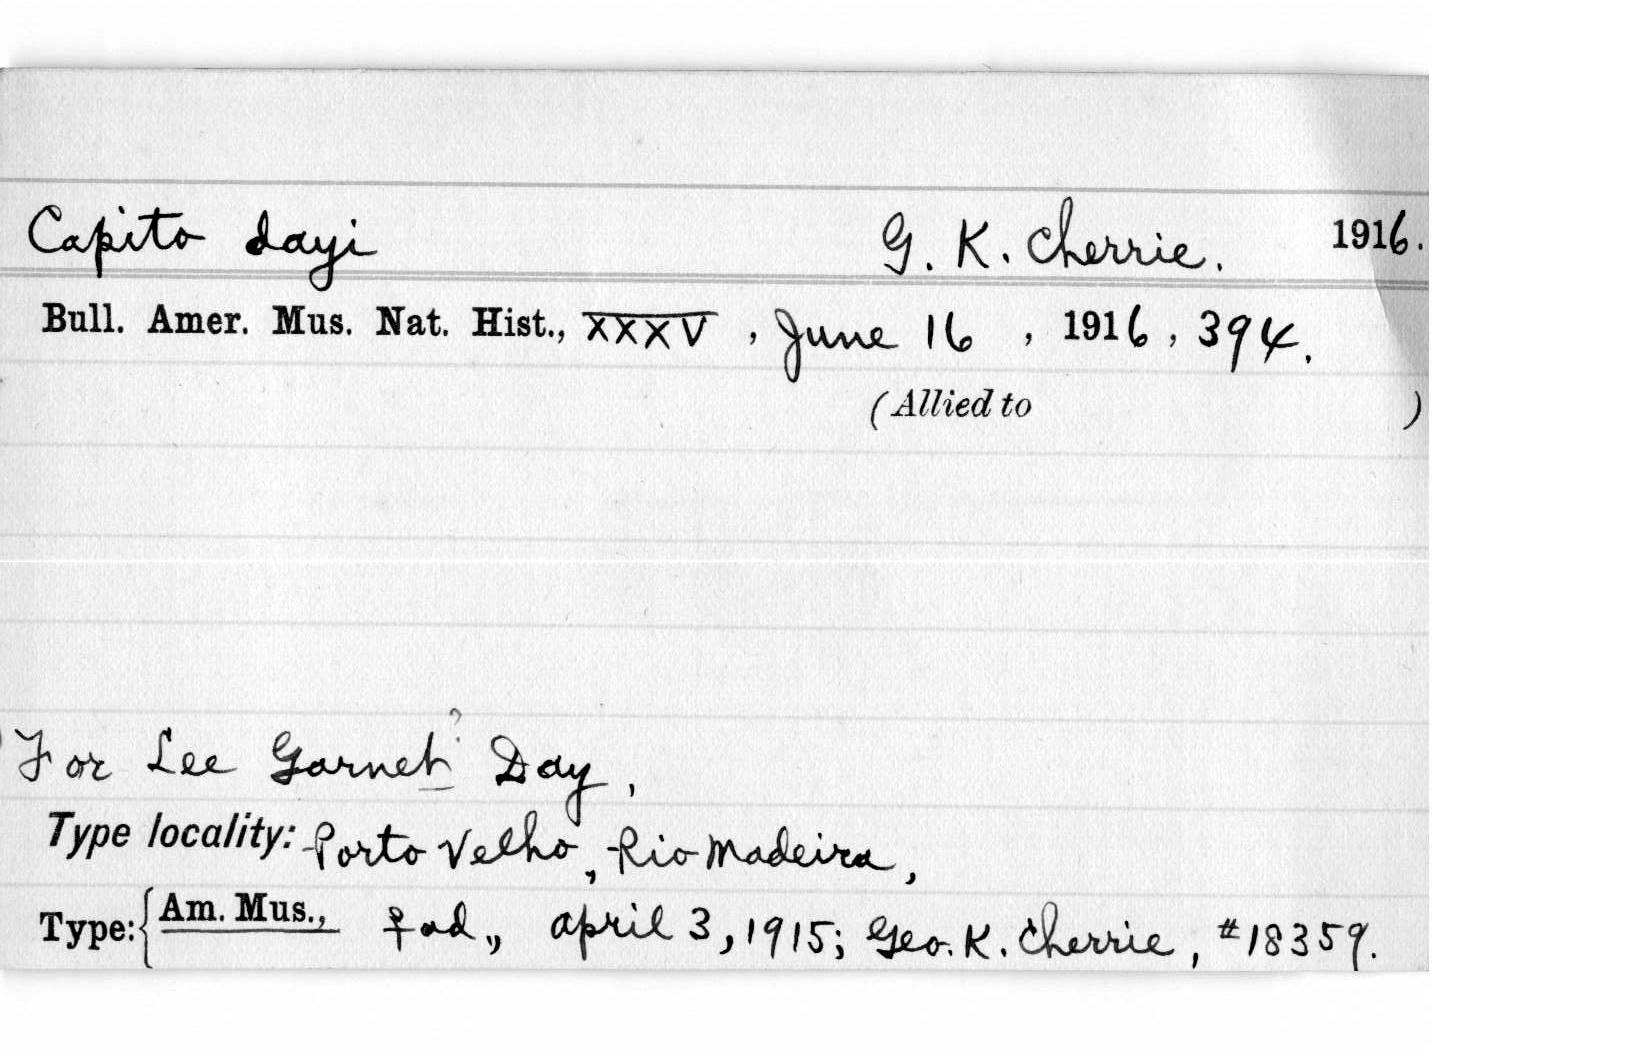 Capito dayi G. K. Cherrie. 1916.
Bull. Amer. Mus. Nat. Hist., XXXV, June 16, 1916, 394.
(Allied to )
?
For Lee Garnet Day,
Type locality: Porto Velho, Rio Madeira,
Type: { Am. Mus., ♀ ad., april 3, 1915; Geo. K. Cherrie, #18359.